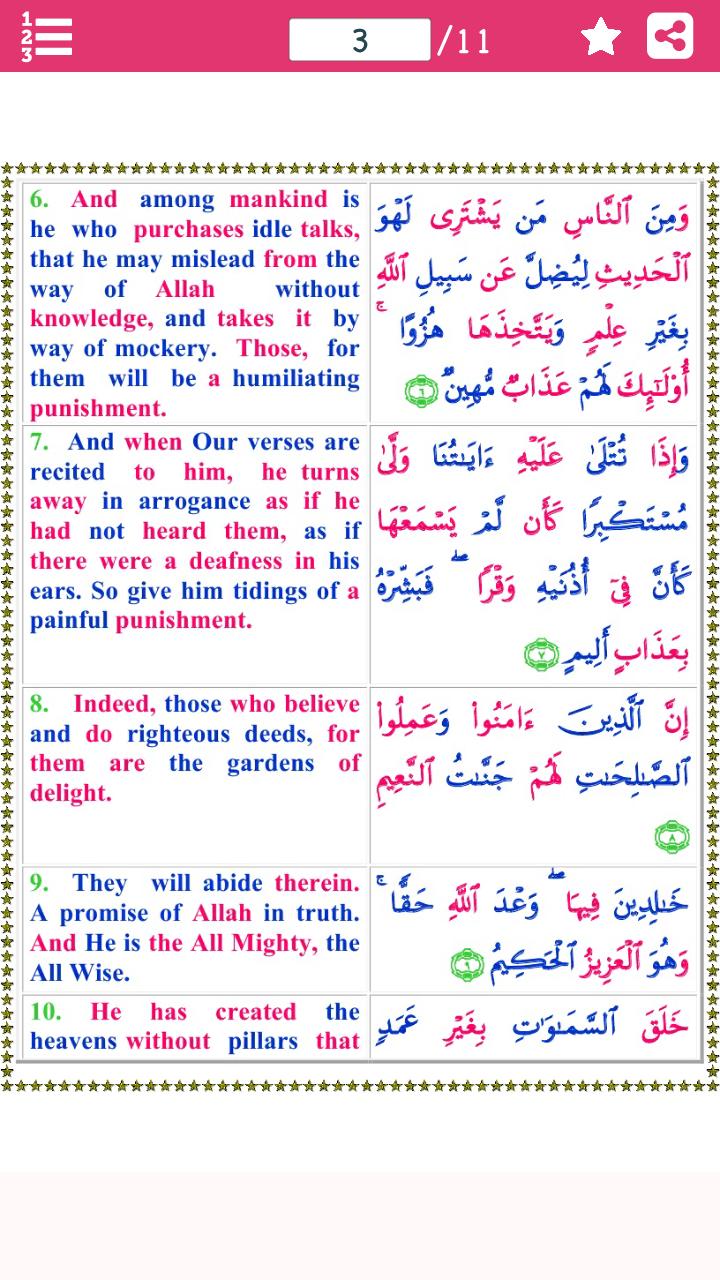 1
2
3
3
/11
6. And among mankind is
he who purchases idle talks,
that he may mislead from the
way of Allah without
knowledge, and takes it by
way of mockery. Those, for
them will be a humiliating
punishment.
وَمِنَ ٱلنَّاسِ مَن يَشْتَرِى لَهْوَ
ٱلْحَدِيثِ لِيُضِلَّ عَن سَبِيلِ ٱللَّهِ
بِغَيْرِ عِلْمٍ وَيَتَّخِذَهَا هُزُوًا ۚ
أُوْلَـٰٓئِكَ لَهُمْ عَذَابٌ مُّهِينٌ ٦
7. And when Our verses are
recited to him, he turns
away in arrogance as if he
had not heard them, as if
there were a deafness in his
ears. So give him tidings of a
painful punishment.
وَإِذَا تُتْلَىٰ عَلَيْهِ ءَايَـٰتُنَا وَلَّىٰ
مُسْتَكْبِرًا كَأَن لَّمْ يَسْمَعْهَا
كَأَنَّ فِىٓ أُذُنَيْهِ وَقْرًا ۖ فَبَشِّرْهُ
بِعَذَابٍ أَلِيمٍ ٧
8. Indeed, those who believe
and do righteous deeds, for
them are the gardens of
delight.
إِنَّ ٱلَّذِينَ ءَامَنُوا۟ وَعَمِلُوا۟
ٱلصَّـٰلِحَـٰتِ لَهُمْ جَنَّـٰتُ ٱلنَّعِيمِ
٨
9. They will abide therein.
A promise of Allah in truth.
And He is the All Mighty, the
All Wise.
خَـٰلِدِينَ فِيهَا ۖ وَعْدَ ٱللَّهِ حَقًّا ۚ
وَهُوَ ٱلْعَزِيزُ ٱلْحَكِيمُ ٩
10. He has created the
heavens without pillars that
خَلَقَ ٱلسَّمَـٰوَٰتِ بِغَيْرِ عَمَدٍ